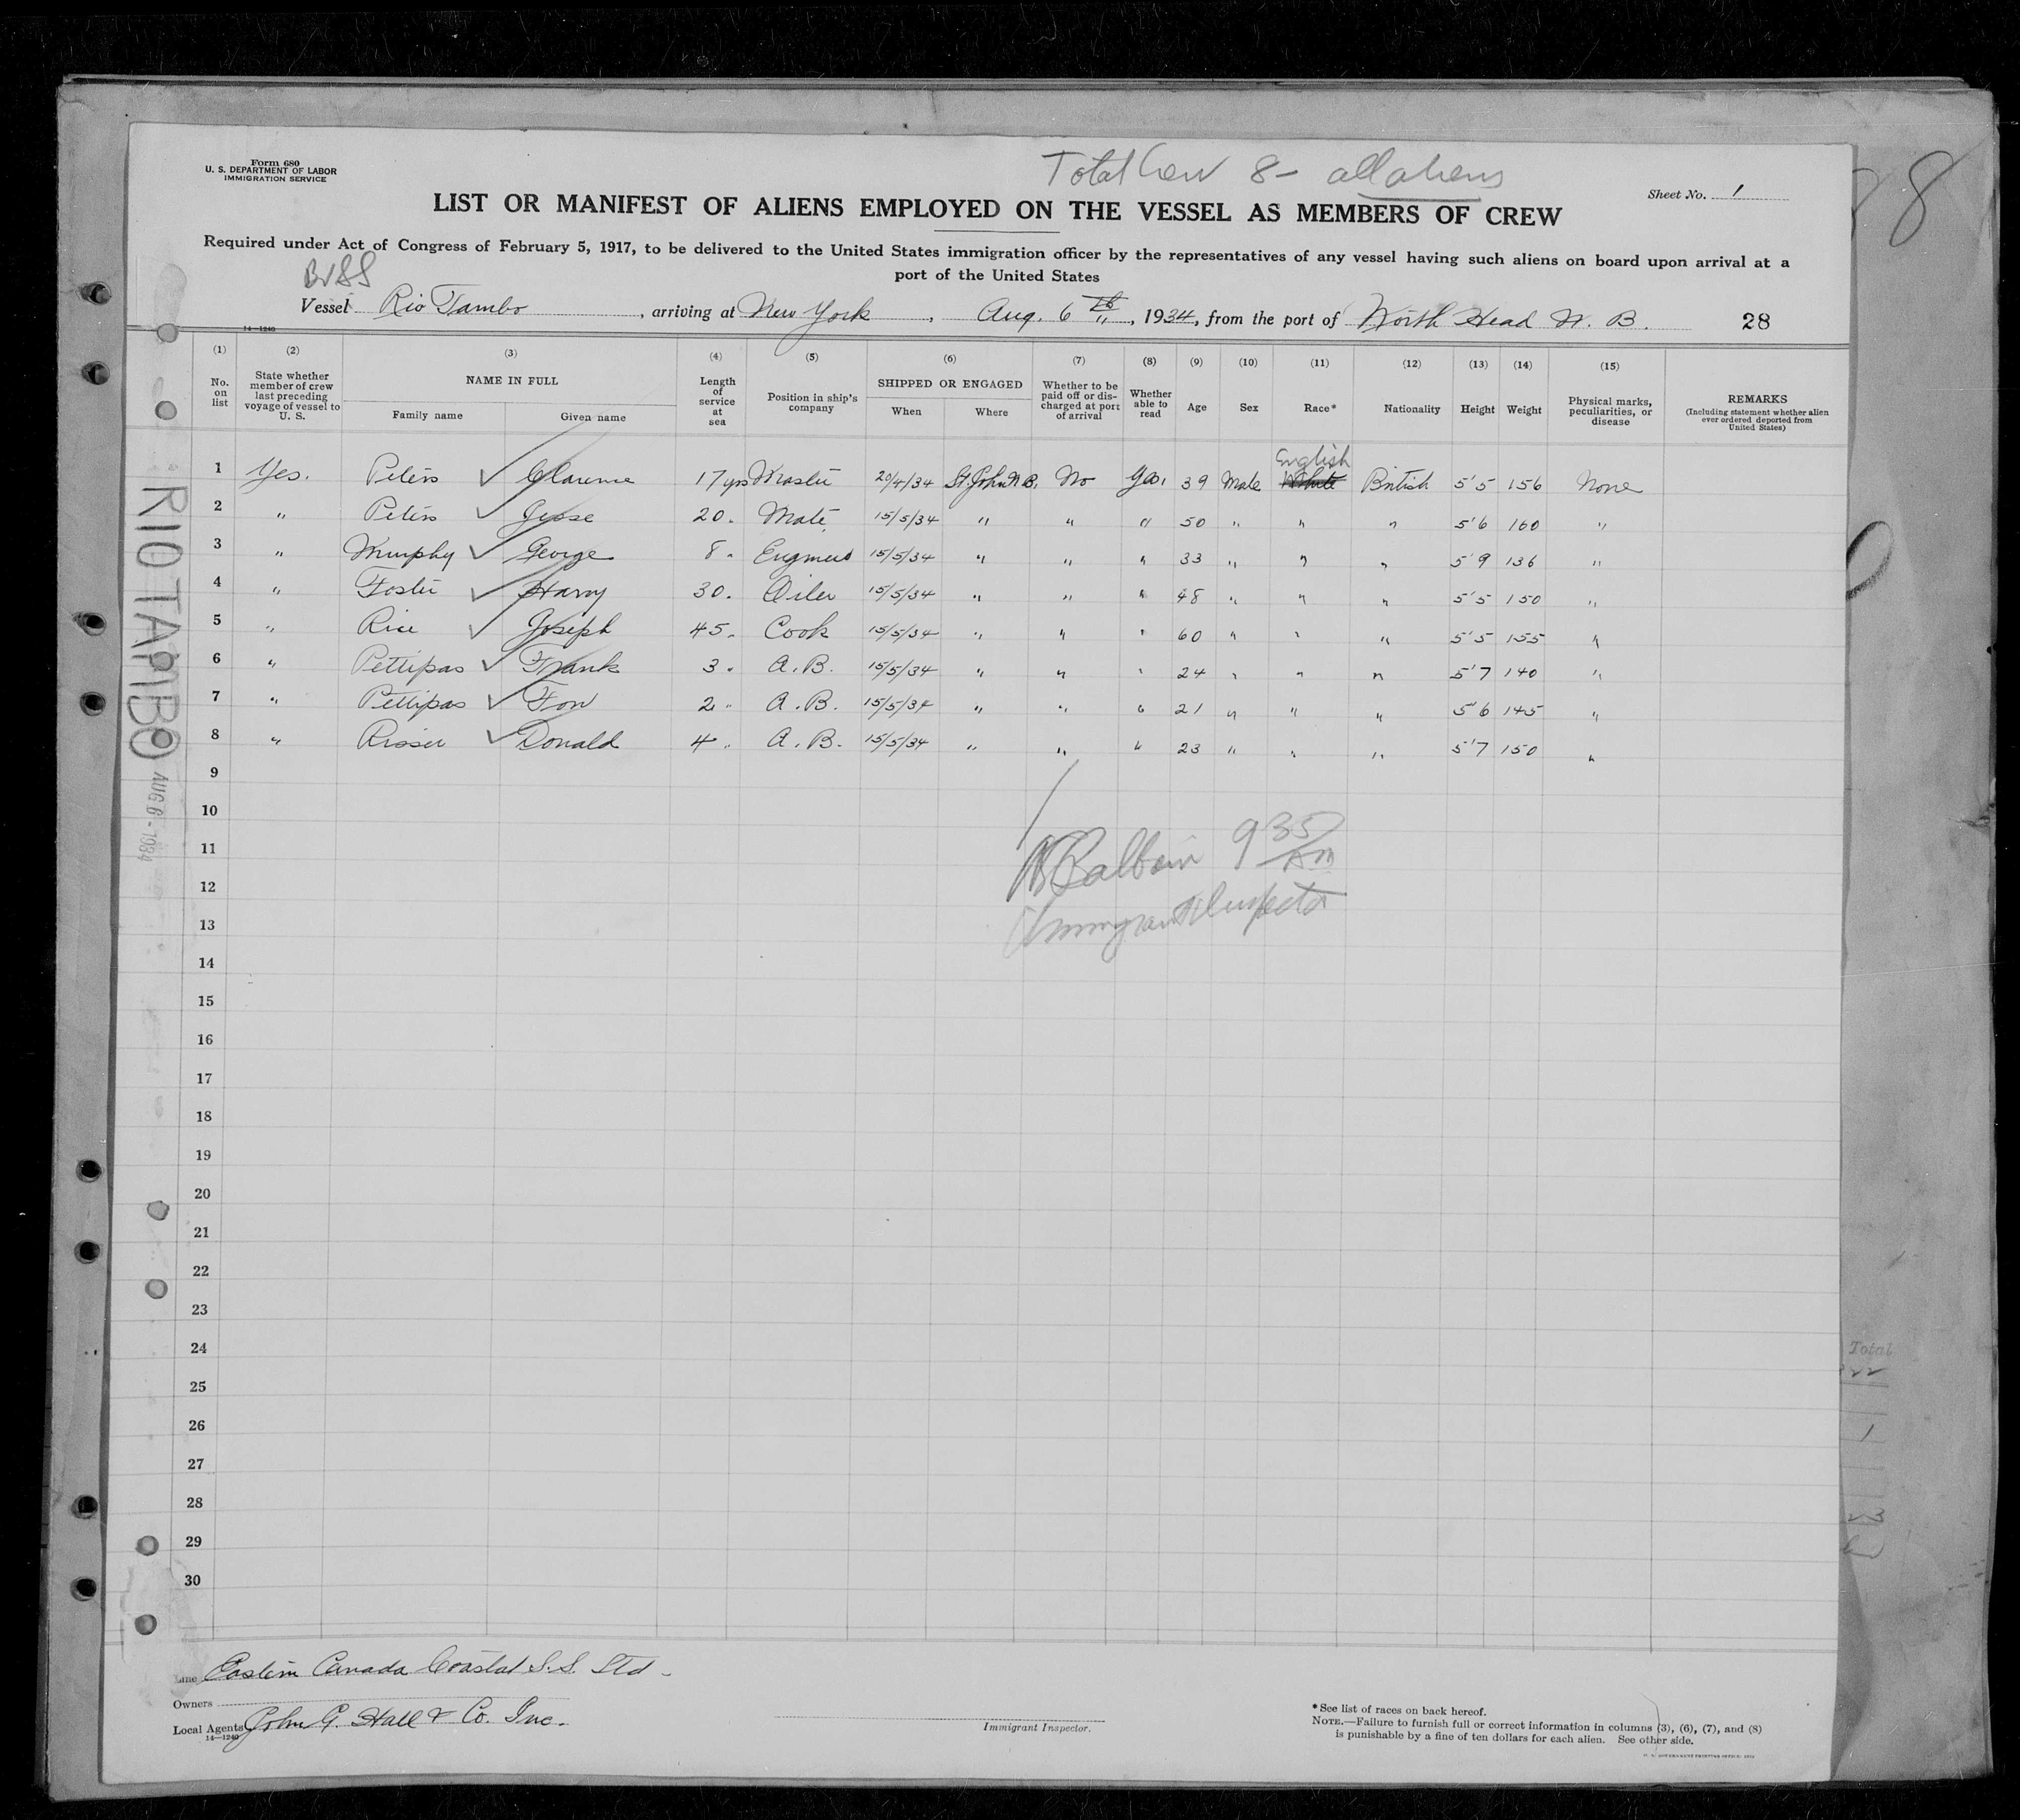 Form 680
U. S. DEPARTMENT OF LABOR
IMMIGRATION SERVICE
Total Crew 8 - all aliens
Sheet No. 1
LIST OR MANIFEST OF ALIENS EMPLOYED ON THE VESSEL AS MEMBERS OF CREW
Required under Act of Congress of February 5, 1917, to be delivered to the United States immigration officer by the representatives of any vessel having such aliens on board upon arrival at a
port of the United States
Br SS
Vessel Rio Tambo, arriving at New York, Aug. 6th, 1934, from the port of North Head N. B. 28
14—1240
(1) (2) (3) (4) (5) (6) (7) (8) (9) (10) (11) (12) (13) (14) (15)
No. on list State whether member of crew last preceding voyage of vessel to U. S. NAME IN FULL Family name Given name Length of service at sea Position in ship's company SHIPPED OR ENGAGED When Where Whether to be paid off or discharged at port of arrival Whether able to read Age Sex Race* Nationality Height Weight Physical marks, peculiarities, or disease REMARKS (Including statement whether alien ever ordered deported from United States)
English
1 Yes. Peters Clarence 17 yrs Master 20/4/34 St. John N B. No Yes. 39 Male White British 5'5 156 None
2 " Peters Jesse 20 " Mate 15/5/34 " " " 50 " " " 5'6 160 "
3 " Murphy George 8 " Engineer 15/5/34 " " " 33 " " " 5'9 136 "
4 " Foster Harry 30 " Oiler 15/5/34 " " " 48 " " " 5'5 150 "
5 " Rice Joseph 45 " Cook 15/5/34 " " " 60 " " " 5'5 155 "
6 " Pettipas Frank 3 " A. B. 15/5/34 " " " 24 " " " 5'7 140 "
7 " Pettipas Fon 2 " A. B. 15/5/34 " " " 21 " " " 5'6 145 "
8 " Risser Donald 4 " A. B. 15/5/34 " " " 23 " " " 5'7 150 "
9
10
11
12
13
14
15
16
17
18
19
20
21
22
23
24
25
26
27
28
29
30
9 35 AM
Immigrant Inspector
RIO TAMBO
AUG 6 - 1934
Line Eastern Canada Coastal S.S. Ltd
Owners
Local Agents John G. Hall & Co. Inc.
14—1240
Immigrant Inspector.
*See list of races on back hereof.
NOTE.—Failure to furnish full or correct information in columns (3), (6), (7), and (8)
is punishable by a fine of ten dollars for each alien. See other side.
Total